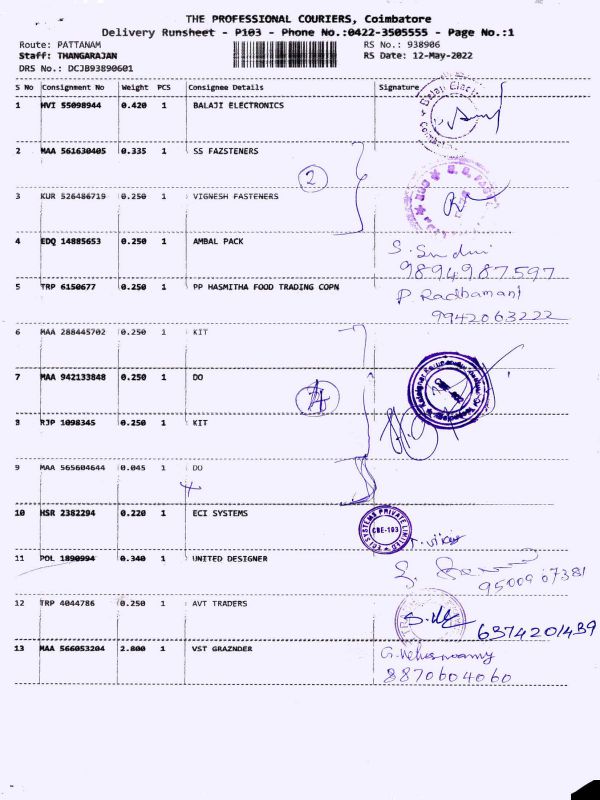 THE PROFESSIONAL COURIERS, Coimbatore
Delivery Runsheet - P103 - Phone No.:0422-3505555 - Page No.:1
Route: PATTANAM RS No.: 938906
Staff: THANGARAJAN RS Date: 12-May-2022
DRS No.: DCJB93890601
S No Consignment No Weight PCS Consignee Details Signature
1 HVI 55098944 0.420 1 BALAJI ELECTRONICS
2 MAA 561630405 0.335 1 SS FAZSTENERS
2
3 KUR 526486719 0.250 1 VIGNESH FASTENERS
4 EDQ 14885653 0.250 1 AMBAL PACK
9894987597
5 TRP 6150677 0.250 1 PP HASMITHA FOOD TRADING COPN P. Radhamani
9942063222
6 MAA 288445702 0.250 1 KIT
7 MAA 942133848 0.250 1 DO
4
8 RJP 1098345 0.250 1 KIT
9 MAA 565604644 0.045 1 DO
10 HSR 2382294 0.220 1 ECI SYSTEMS ECI SYSTEMS PRIVATE LIMITED CBE-103
11 POL 1890994 0.340 1 UNITED DESIGNER
9500967381
12 TRP 4044786 0.250 1 AVT TRADERS
6374201439
13 MAA 566053204 2.800 1 VST GRAZNDER
8870604060